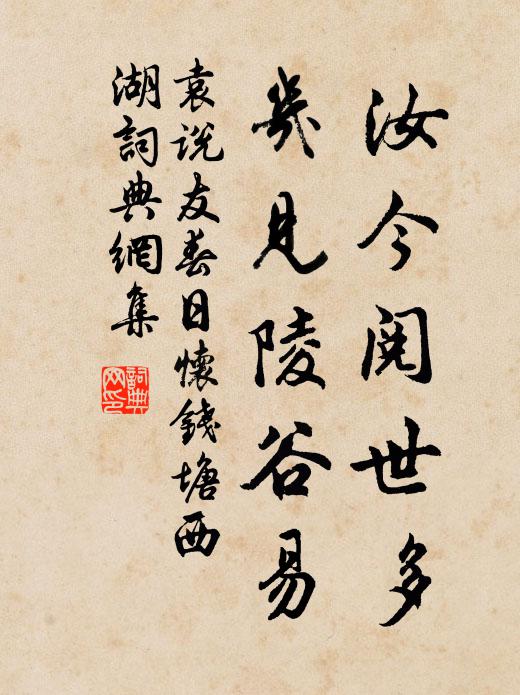 汝今閱世多
幾見陵谷易
袁說友春日懷錢塘西
湖詞典網集
詞典
网印